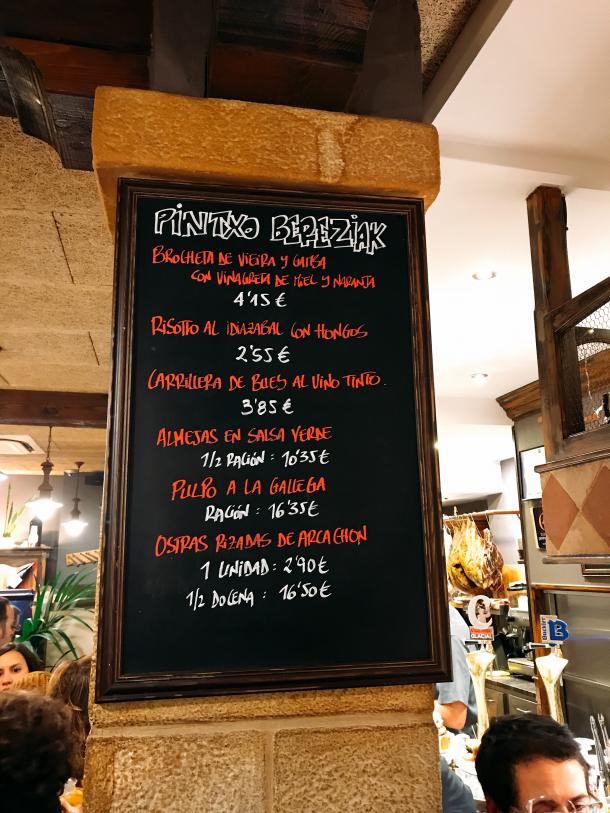 PINTXO BEREZIAK
BROCHETA DE VIEIRA Y GAMBA
CON VINAGRETA DE MIEL Y NARANJA
4'15 €
RISOTTO AL IDIAZABAL CON HONGOS
2'55 €
CARRILLERA DE BUEY AL VINO TINTO.
3'85 €
ALMEJAS EN SALSA VERDE
1/2 RACIÓN: 10'35€
PULPO A LA GALLEGA
RACIÓN: 16'35€
OSTRAS RIZADAS DE ARCACHON
1 UNIDAD: 2'90€
1/2 DOCENA: 16'50€
GLACIAL
Buckler
B